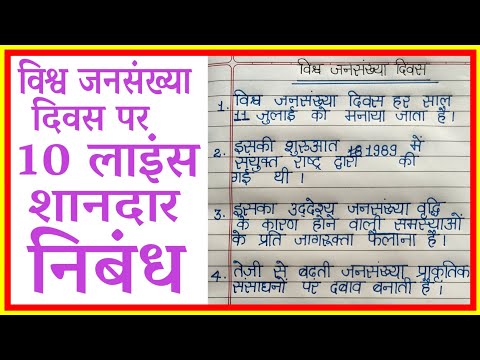 विश्व जनसंख्या
दिवस पर
10 लाइंस
शानदार
निबंध
विश्व जनसंख्या दिवस
1. विश्व जनसंख्या दिवस हर साल
11 जुलाई को मनाया जाता है।
2. इसकी शुरुआत 1989 में
संयुक्त राष्ट्र द्वारा की
गई थी।
3. इसका उद्देश्य जनसंख्या वृद्धि
के कारण होने वाली समस्याओं
के प्रति जागरूक्ता फैलाना है।
4. तेजी से बढ़ती जनसंख्या प्राकृतिक
संसाधनों पर दबाव बनाती है।